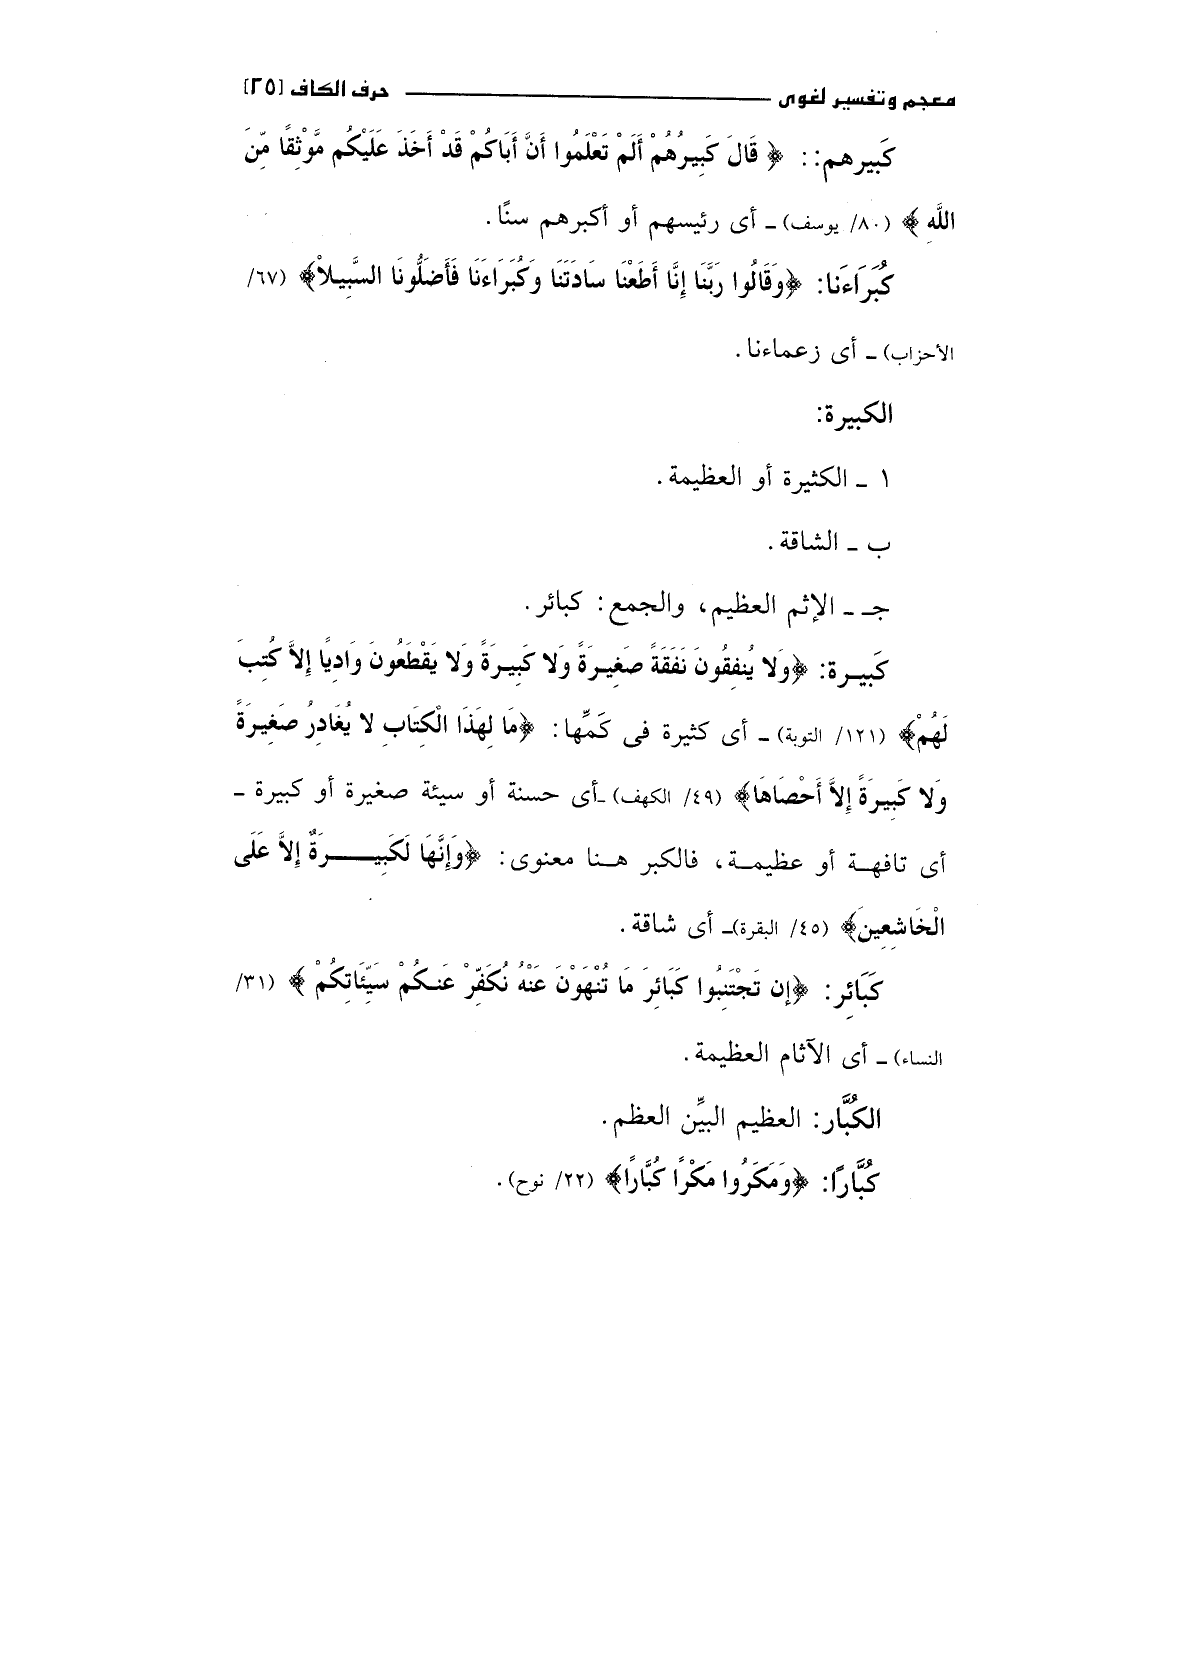 معجم وتفسير لغوى حرف الكاف [٢٥]
كَبيرهم:: ﴿ قَالَ كَبِيرُهُمْ أَلَمْ تَعْلَمُوا أَنَّ أَبَاكُمْ قَدْ أَخَذَ عَلَيْكُم مَّوْثِقًا مِّنَ
اللَّهِ ﴾ (٨٠/ يوسف) ـ أى رئيسهم أو أكبرهم سنًا.
كُبَرَاءَنا: ﴿وَقَالُوا رَبَّنَا إِنَّا أَطَعْنَا سَادَتَنَا وَكُبَرَاءَنَا فَأَضَلُّونَا السَّبِيلاْ﴾ (٦٧/
الأحزاب) ـ أى زعماءنا.
الكبيرة:
١ ـ الكثيرة أو العظيمة.
ب ـ الشاقة.
جـ ـ الإثم العظيم، والجمع: كبائر.
كَبيـرة: ﴿وَلا يُنفِقُونَ نَفَقَةً صَغِيرَةً وَلا كَبِيرَةً وَلا يَقْطَعُونَ وَادِيًا إِلاَّ كُتِبَ
لَهُمْ﴾ (١٢١/ التوبة) ـ أى كثيرة فى كَمِّها: ﴿مَا لِهَذَا الْكِتَابِ لا يُغَادِرُ صَغِيرَةً
وَلا كَبِيرَةً إِلاَّ أَحْصَاهَا﴾ (٤٩/ الكهف) ـأى حسنة أو سيئة صغيرة أو كبيرة ـ
أى تافهـة أو عظيمـة، فالكبر هـنا معنوى: ﴿وَإِنَّهَا لَكَبِيـــــرَةٌ إِلاَّ عَلَى
الْخَاشِعِينَ﴾ (٤٥/ البقرة)ـ أى شاقة.
كَبَائِر: ﴿إِن تَجْتَنِبُوا كَبَائِرَ مَا تُنْهَوْنَ عَنْهُ نُكَفِّرْ عَنكُمْ سَيِّئَاتِكُمْ ﴾ (٣١/
النساء) ـ أى الآثام العظيمة.
الكُبَّار: العظيم البيِّن العظم.
كُبَّارًا: ﴿وَمَكَرُوا مَكْرًا كُبَّارًا﴾ (٢٢/ نوح).